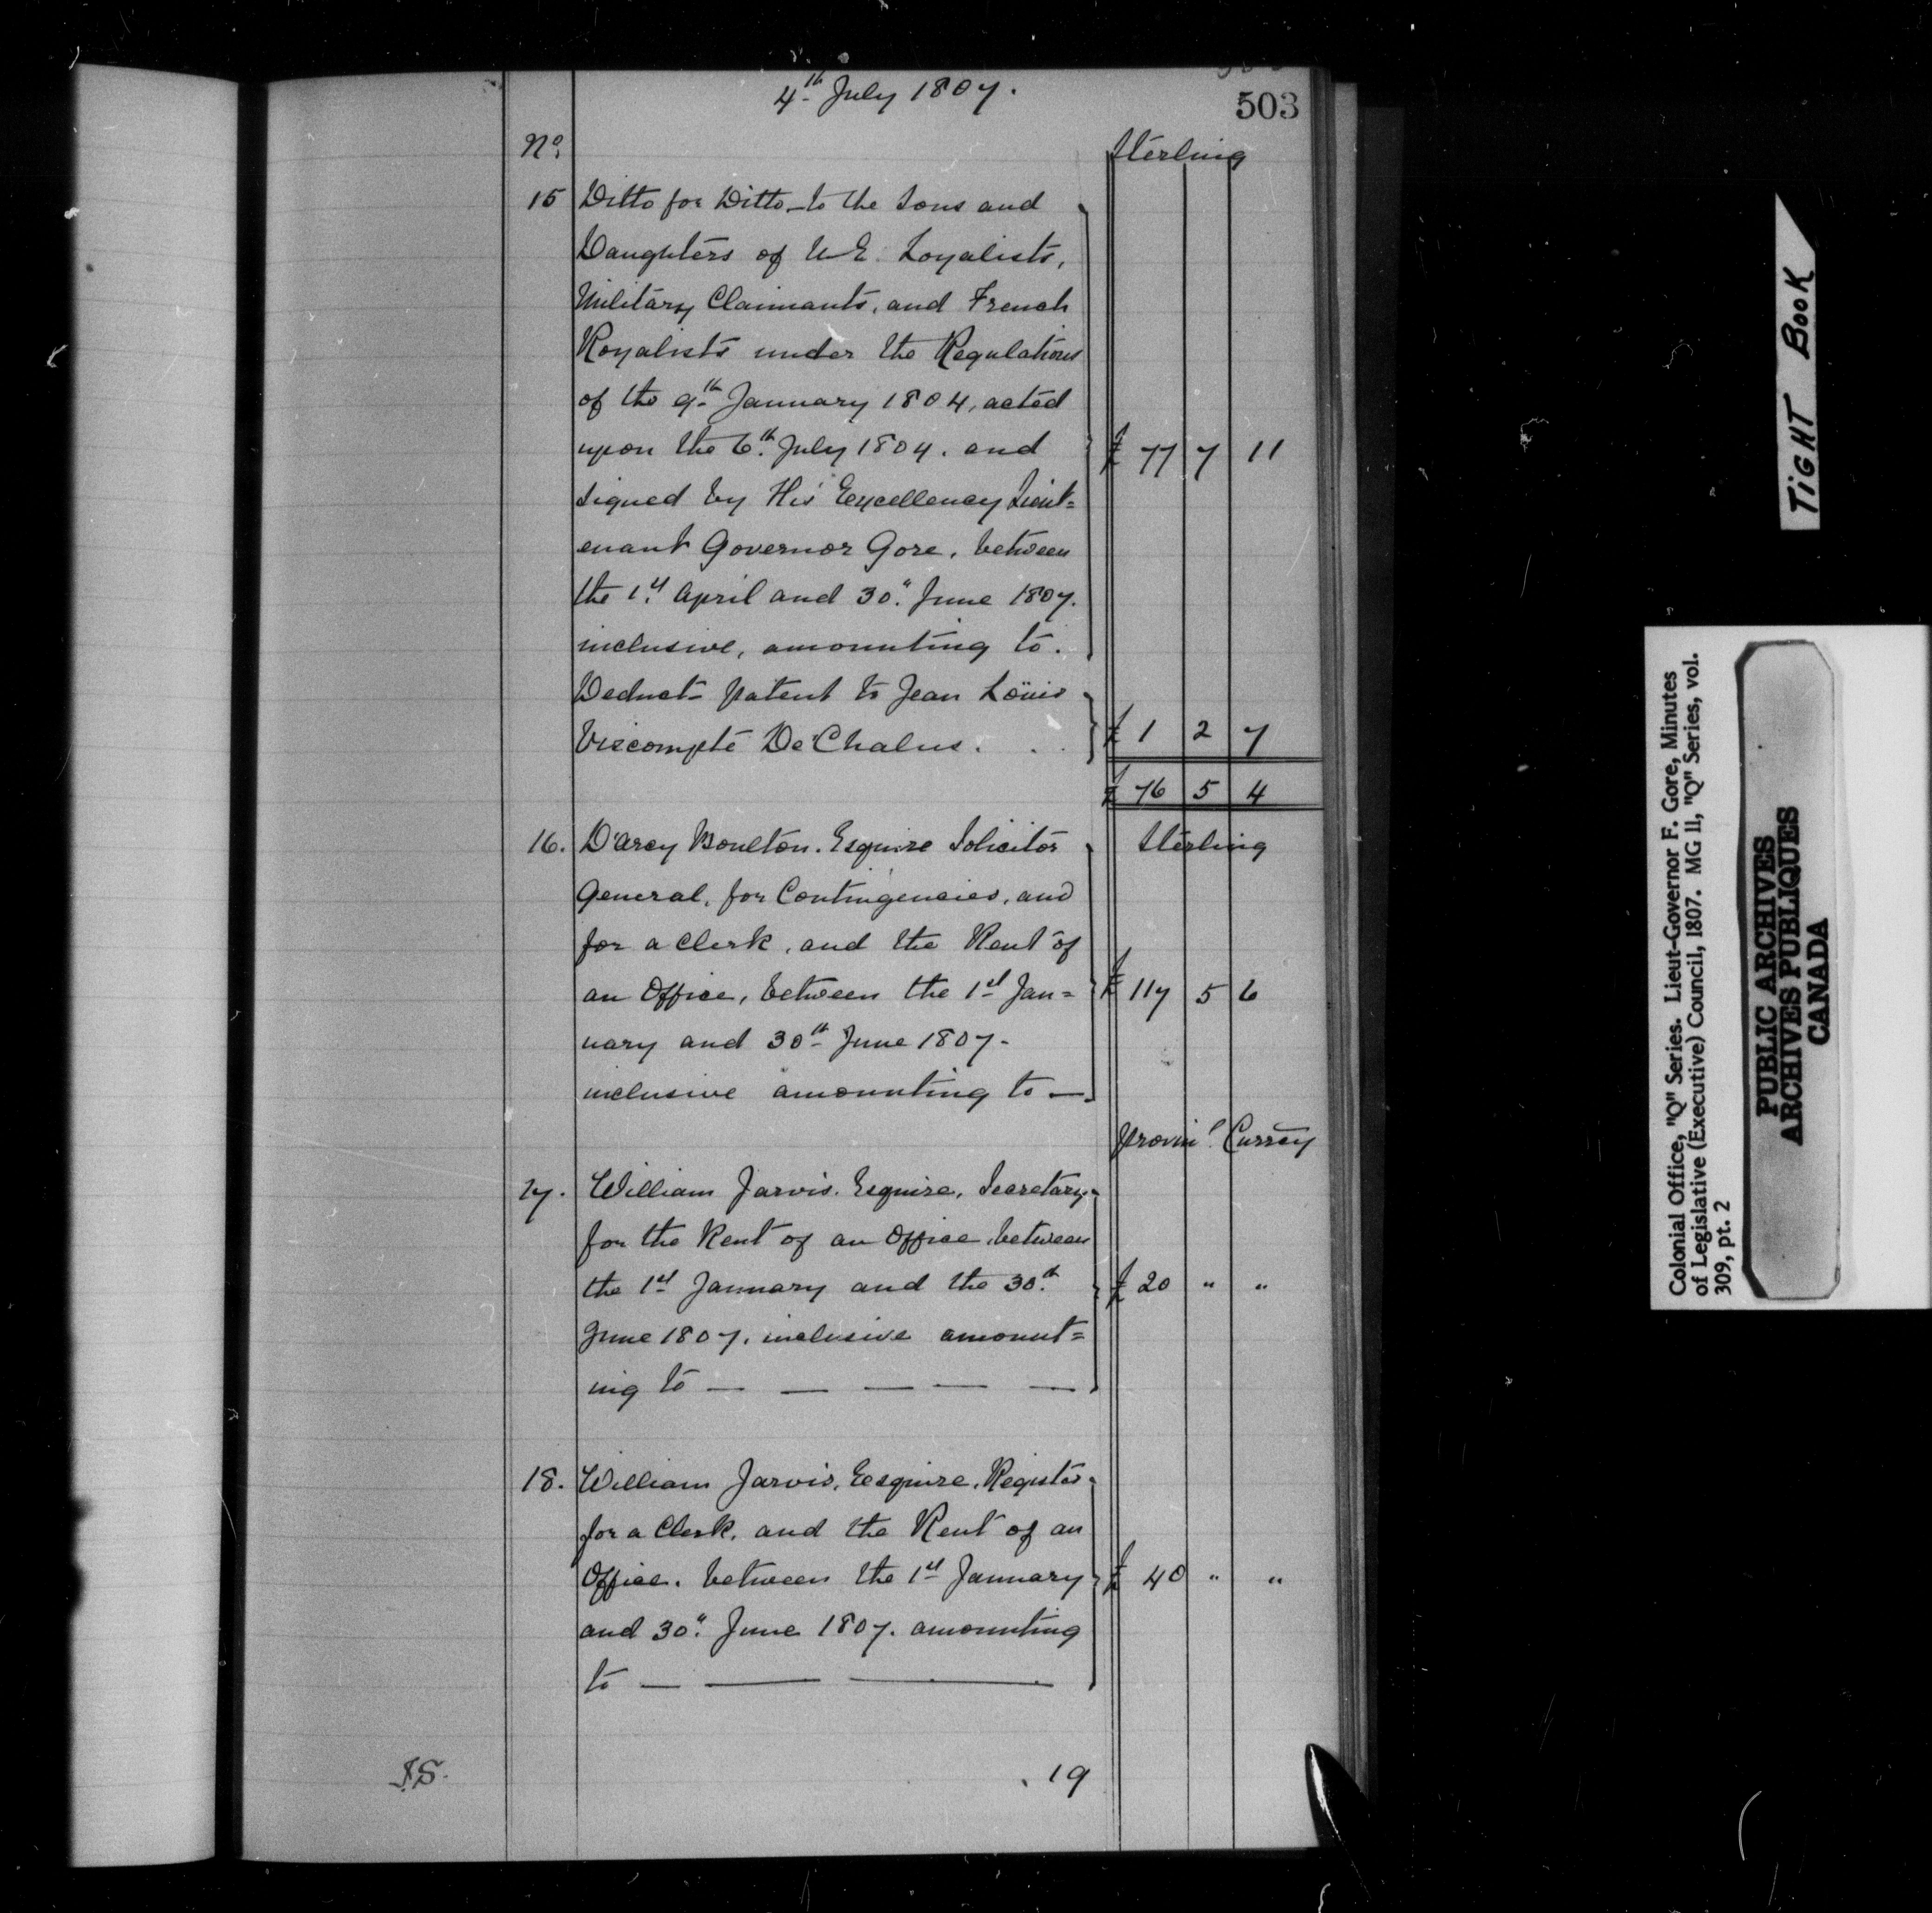 4th July 1807.
503
No.
Sterling
15 Ditto for Ditto - to the Sons and
Daughters of UE Loyalists,
Military Claimants, and French
Royalists under the Regulations
of the 9th January 1804, acted
upon the 6th July 1804. and £ 77 7 11
signed by His Excellency Lieut=
enant Governor Gore, between
the 1st April and 30" June 1807.
inclusive, amounting to.
Deduct- Patent to Jean Loüis
Viscompte De Chalus. . . £ 1 2 7
£ 76 5 4
16. D'Arcy Boulton. Esquire Solicitor Sterling
General, for Contingencies, and
for a Clerk, and the Rent of
an Office, between the 1st Jan= £ 117 5 6
uary and 30th June 1807-
inclusive amounting to —
Provinl. Curr̄cy
17. William Jarvis. Esquire, Secretary
for the Rent of an Office, between
the 1st January and the 30th £ 20 " "
June 1807, inclusive amount=
ing to — — — — —
18. William Jarvis, Esquire, Register
for a Clerk, and the Rent of an
Office. between the 1st January £ 40 " "
and 30" June 1807. amounting
to — — —
I.S.
19
TIGHT BOOK
Colonial Office, "Q" Series. Lieut-Governor F. Gore, Minutes
of Legislative (Executive) Council, 1807. MG 11, "Q" Series, vol.
309, pt. 2
PUBLIC ARCHIVES
ARCHIVES PUBLIQUES
CANADA